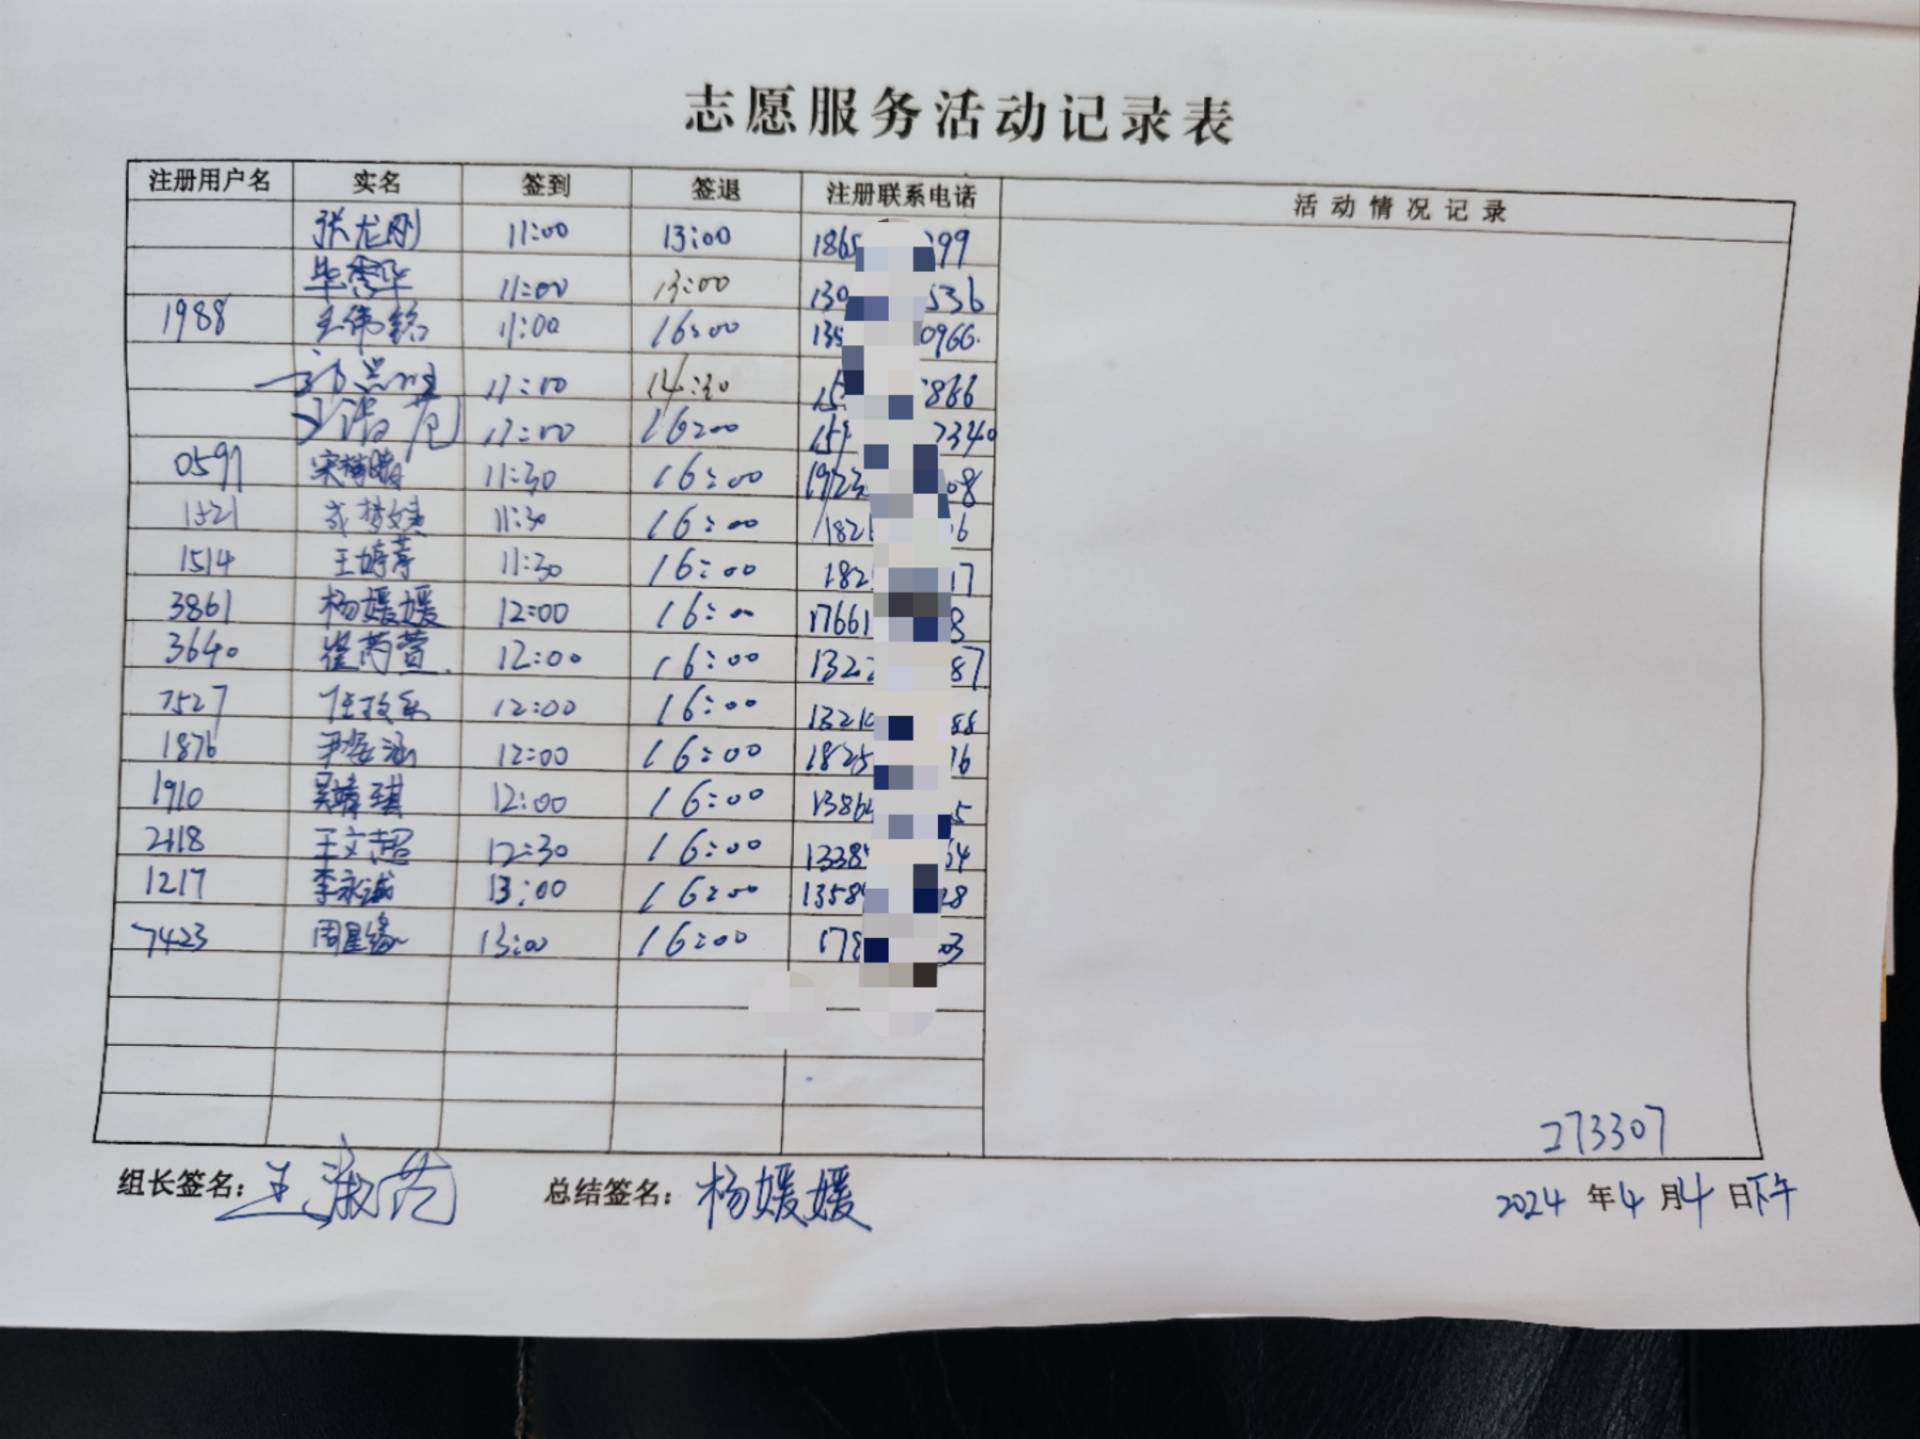 志愿服务活动记录表
注册用户名 实名 签到 签退 注册联系电话 活动情况记录
张龙刚 11:00 13:00 1865 99
毕秀华 11:00 13:00 130 536
1988 王伟铭 11:00 16:00 135 0966
11:00 14:30 15 866
11:00 16:00 15 7340
0591 11:30 16:00 1923 08
1521 11:30 16:00 182 6
1514 王婷 11:30 16:00 182 17
3861 杨媛媛 12:00 16:00 17661 8
3640 崔芮萱 12:00 16:00 132 87
7527 12:00 16:00 1321 88
1876 尹 涵 12:00 16:00 1825 16
1910 吴婧琪 12:00 16:00 1386 5
2418 王文超 12:30 16:00 1338 64
1217 李永诚 13:00 16:00 1358 28
7423 周星缘 13:00 16:00 178 03
273307
组长签名: 王淑 总结签名: 杨媛媛 2024年4月4日下午